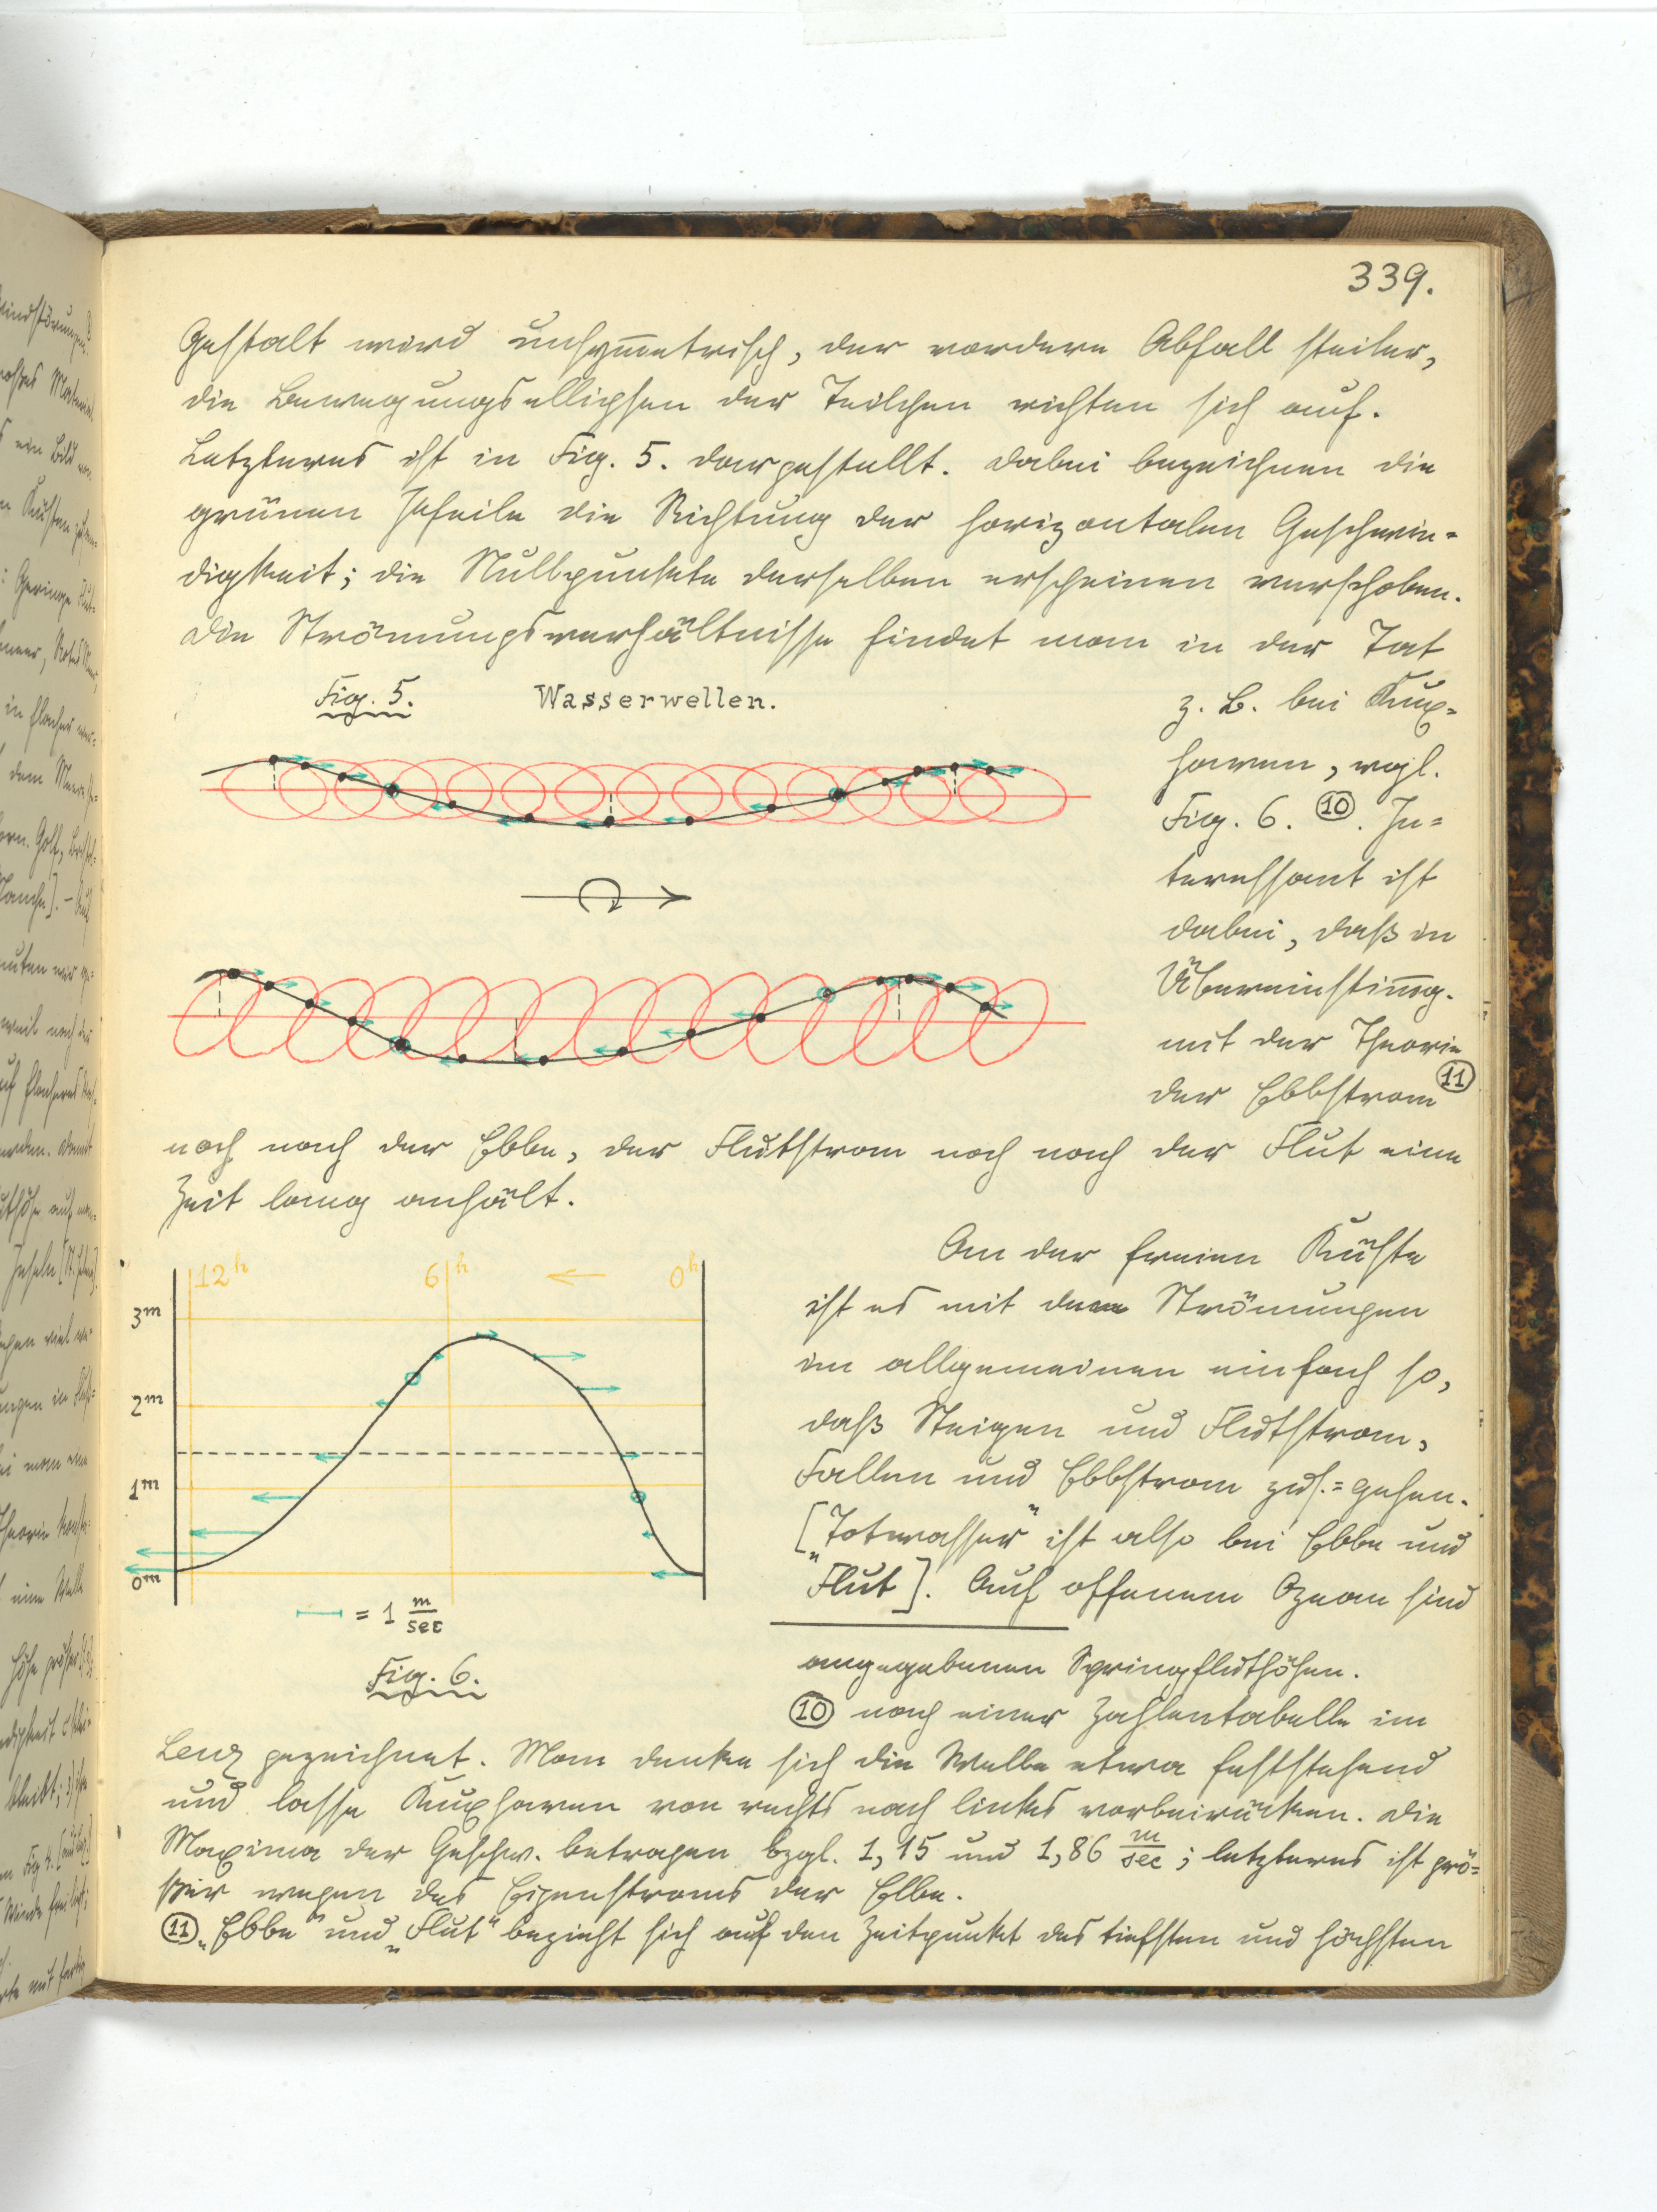 339.
Gestalt wird unsym̄etrisch, der vordere Abfall steiler,
die Bewegungsellipsen der Teilchen richten sich auf.
Letzteres ist in Fig. 5. dargestellt. Dabei bezeichnen die
grünen Pfeile die Richtung der horizontalen Geschwin=
digkeit; die Nullpunkte derselben erscheinen verschoben.
Die Strömungsverhältnisse findet man in der Tat
Fig. 5. Wasserwellen.
z. B. bei Kux=
haven, vgl.
Fig. 6. ⑩. In=
teressant ist
dabei, daß in
Übereinstim̄g.
mit der Theorie
der Ebbstrom ⑪
noch nach der Ebbe, der Flutstrom noch nach der Flut eine
Zeit lang anhält.
12ʰ 6ʰ ← 0ʰ
3ᵐ
2ᵐ
1ᵐ
0ᵐ
= 1 m/sec
Fig. 6.
An der freien Küste
ist es mit den Strömungen
im allgemeinen einfach so,
daß Steigen und Flutstrom,
Fallen und Ebbstrom zus.=gehen.
[„Totwasser" ist also bei Ebbe und
Flut]. Auf offenem Ozean sind
angegebenen Springfluthöhen.
⑩ nach einer Zahlentabelle im
Lenz gezeichnet. Man denke sich die Welle etwa feststehend
und lasse Kuxhaven von rechts nach links vorbeirücken. Die
Maxima der Geschw. betragen bzgl. 1,15 und 1,86 m/sec; letzteres ist grö=
ßer wegen des Eigenstroms der Elbe.
⑪ „Ebbe" und „Flut" bezieht sich auf den Zeitpunkt des tiefsten und höchsten